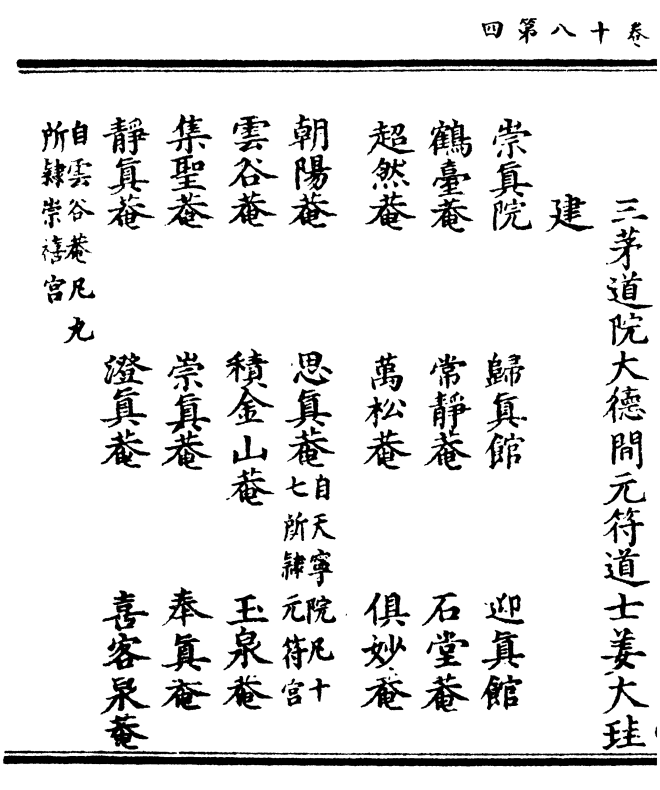 卷十八第四
三茅道院大德間元符道士姜大珪
建
崇眞院 歸眞館 迎眞館
鶴臺菴 常靜菴 石堂菴
超然菴 萬松菴 俱妙菴
朝陽菴 思眞菴自天寧院凡十七所隸元符宮
雲谷菴 積金山菴 玉泉菴
集聖菴 崇眞菴 奉眞菴
靜眞菴 澄眞菴 喜客泉菴
自雲谷菴凡九所隸崇禧宮